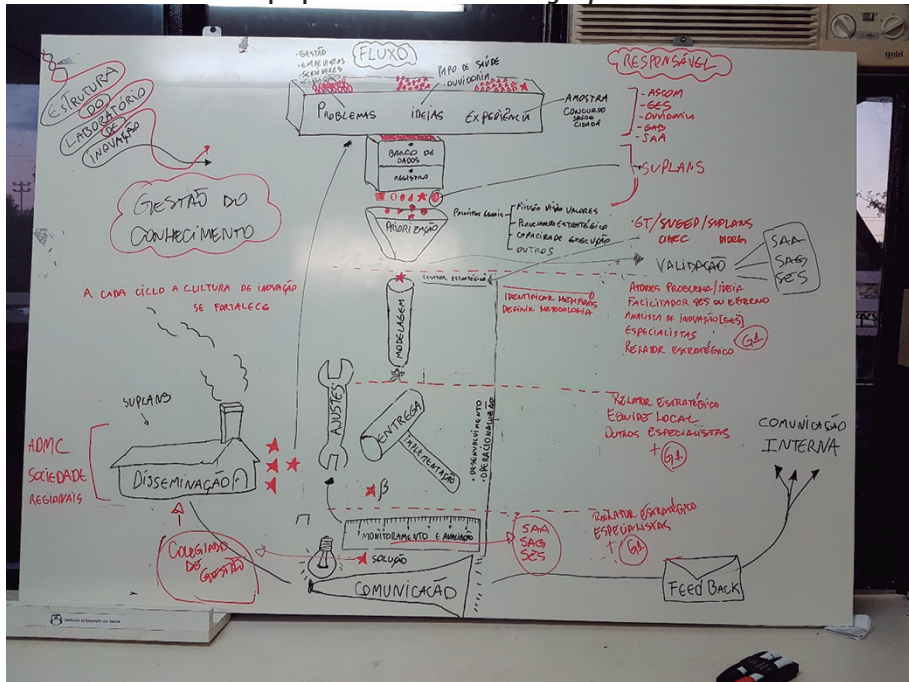 ESTRUTURA
DO
LABORATÓRIO
DE
INOVAÇÃO
GESTÃO DO
CONHECIMENTO
A CADA CICLO A CULTURA DE INOVAÇÃO
SE FORTALECE
SUPLANS
ADMC
SOCIEDADE
REGIONAIS
DISSEMINAÇÃO
COLEGIADO
DE
GESTÃO
FLUXO
· GESTÃO
· ENTREVISTAS
· SERVIDORES
PAPO DE SAÚDE
· OUVIDORIA
PROBLEMAS IDEIAS EXPERIÊNCIA
AMOSTRA
CONCURSO
SAÚDE
CIDADÃ
BANCO DE
DADOS
REGISTRO
PRIORIZAÇÃO
MISSÃO VISÃO VALORES
PLANEJAMENTO ESTRATÉGICO
CAPACIDADE EXECUÇÃO
OUTROS
MODELAGEM
IDENTIFICAR MEMBROS
DEFINIR METODOLOGIA
AJUSTES
ENTREGA
IMPLEMENTAÇÃO
· DESENVOLVIMENTO
· OPERACIONALIZAÇÃO
β
MONITORAMENTO E AVALIAÇÃO
SOLUÇÃO
COMUNICAÇÃO
SAA
SAG
SES
RESPONSÁVEL
- ASCOM
- GES
- OUVIDORIA
- GAD
- SAA
SUPLANS
· GT/SUGEP/SUPLANS
VALIDAÇÃO
SAA
SAG
SES
ATORES PROBLEMA/IDEIA
FACILITADOR SES OU EXTERNO
ANALISTA DE INOVAÇÃO [GES]
ESPECIALISTAS
RELATOR ESTRATÉGICO
G1
RELATOR ESTRATÉGICO
EQUIPE LOCAL
OUTROS ESPECIALISTAS
+ G1
RELATOR ESTRATÉGICO
ESPECIALISTAS
+ G1
COMUNICAÇÃO
INTERNA
FEEDBACK
gold